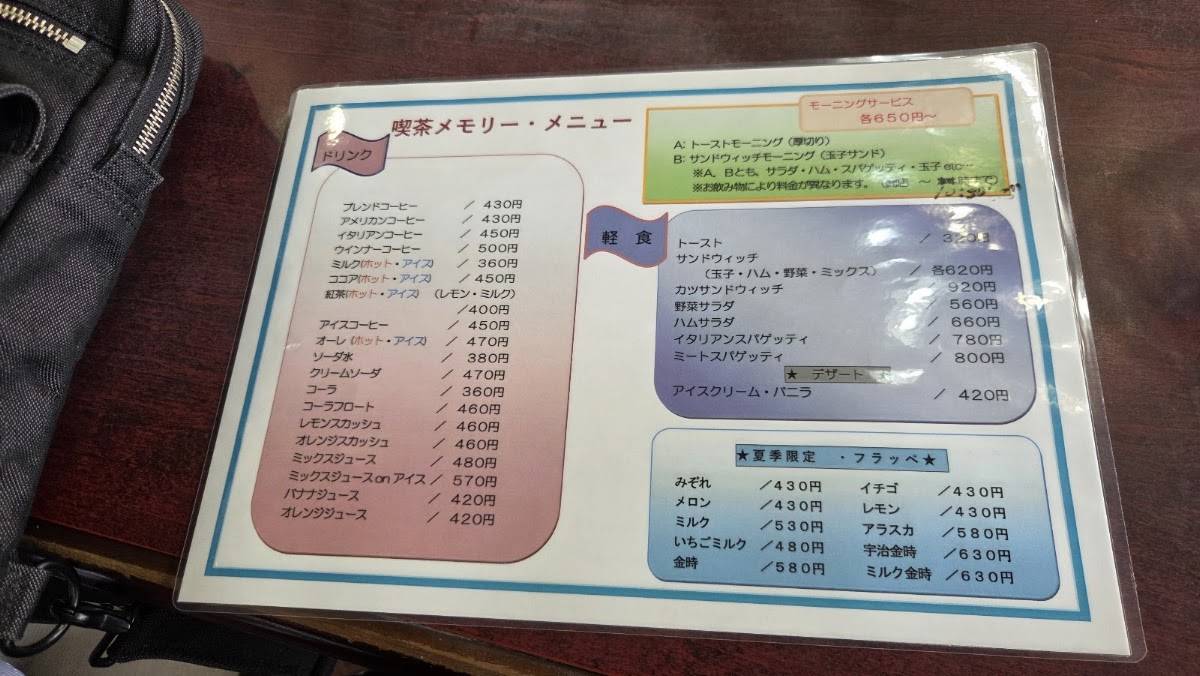 喫茶メモリー・メニュー
ドリンク
ブレンドコーヒー ／ 430円
アメリカンコーヒー ／ 430円
イタリアンコーヒー ／ 450円
ウインナーコーヒー ／ 500円
ミルク(ホット・アイス) ／ 360円
ココア(ホット・アイス) ／ 450円
紅茶(ホット・アイス) (レモン・ミルク)
／400円
アイスコーヒー ／ 450円
オーレ (ホット・アイス) ／ 470円
ソーダ水 ／ 380円
クリームソーダ ／ 470円
コーラ ／ 360円
コーラフロート ／ 460円
レモンスカッシュ ／ 460円
オレンジスカッシュ ／ 460円
ミックスジュース ／ 480円
ミックスジュース on アイス ／ 570円
バナナジュース ／ 420円
オレンジジュース ／ 420円
モーニングサービス
各650円～
A: トーストモーニング (厚切り)
B: サンドウィッチモーニング (玉子サンド)
※A、Bとも、サラダ・ハム・スパゲッティ・玉子 etc…
※お飲み物により料金が異なります。 ～ まで)
軽食
トースト ／ 320円
サンドウィッチ
(玉子・ハム・野菜・ミックス) ／ 各620円
カツサンドウィッチ ／ 920円
野菜サラダ ／ 560円
ハムサラダ ／ 660円
イタリアンスパゲッティ ／ 780円
ミートスパゲッティ ／ 800円
★ デザート ★
アイスクリーム・バニラ ／ 420円
★夏季限定 ・フラッペ★
みぞれ ／430円 イチゴ ／430円
メロン ／430円 レモン ／430円
ミルク ／530円 アラスカ ／580円
いちごミルク ／480円 宇治金時 ／630円
金時 ／580円 ミルク金時 ／630円